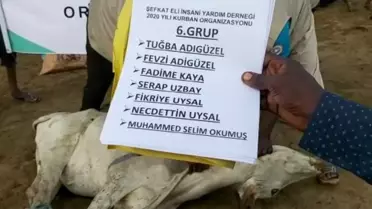 ŞEFKAT ELİ İNSANİ YARDIM DERNEĞİ
2020 YILI KURBAN ORGANİZASYONU
6.GRUP
✓ TUĞBA ADIGÜZEL
✓ FEVZİ ADIGÜZEL
✓ FADİME KAYA
✓ SERAP UZBAY
✓ FİKRİYE UYSAL
✓ NECDETTİN UYSAL
✓ MUHAMMED SELİM OKUMUŞ